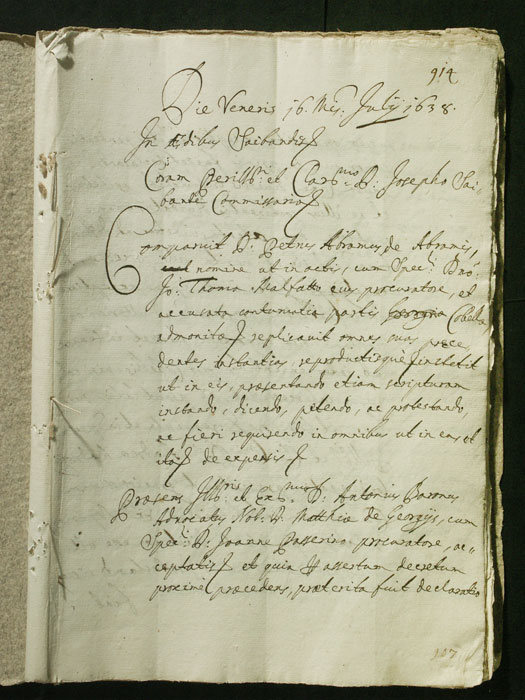 914
Die Veneris 16. Mis. Julij 1638.
In Ædibus Saibandis
Coram Perillri. et Clarmo. D. Josepho Sai-
bante Commissario
Comparuit D. Petrus Abramus de Abramis,
nomine ut in actis, cum Spec. D.
Jo. Thoma Malfatto eius procuratore, et
accusata contumatia partis Cobella
admonita replicavit omnes suas præce
dentes instantias reproductisque institit
ut in eis, præsentando etiam scripturam
instando, dicendo, petendo, ac protestando,
ac fieri requirendo in omnibus ut in eis et
ita de expensis
Præsens Illris. et Exmus D. Antonius Baronus
Advocatus Nob. D. Matthiæ de Georgijs, cum
Spec. D. Joanne Passerino procuratore, ac=
ceptatis et quia assertum decretum
proxime præcedens, præterita fuit declaratio
107